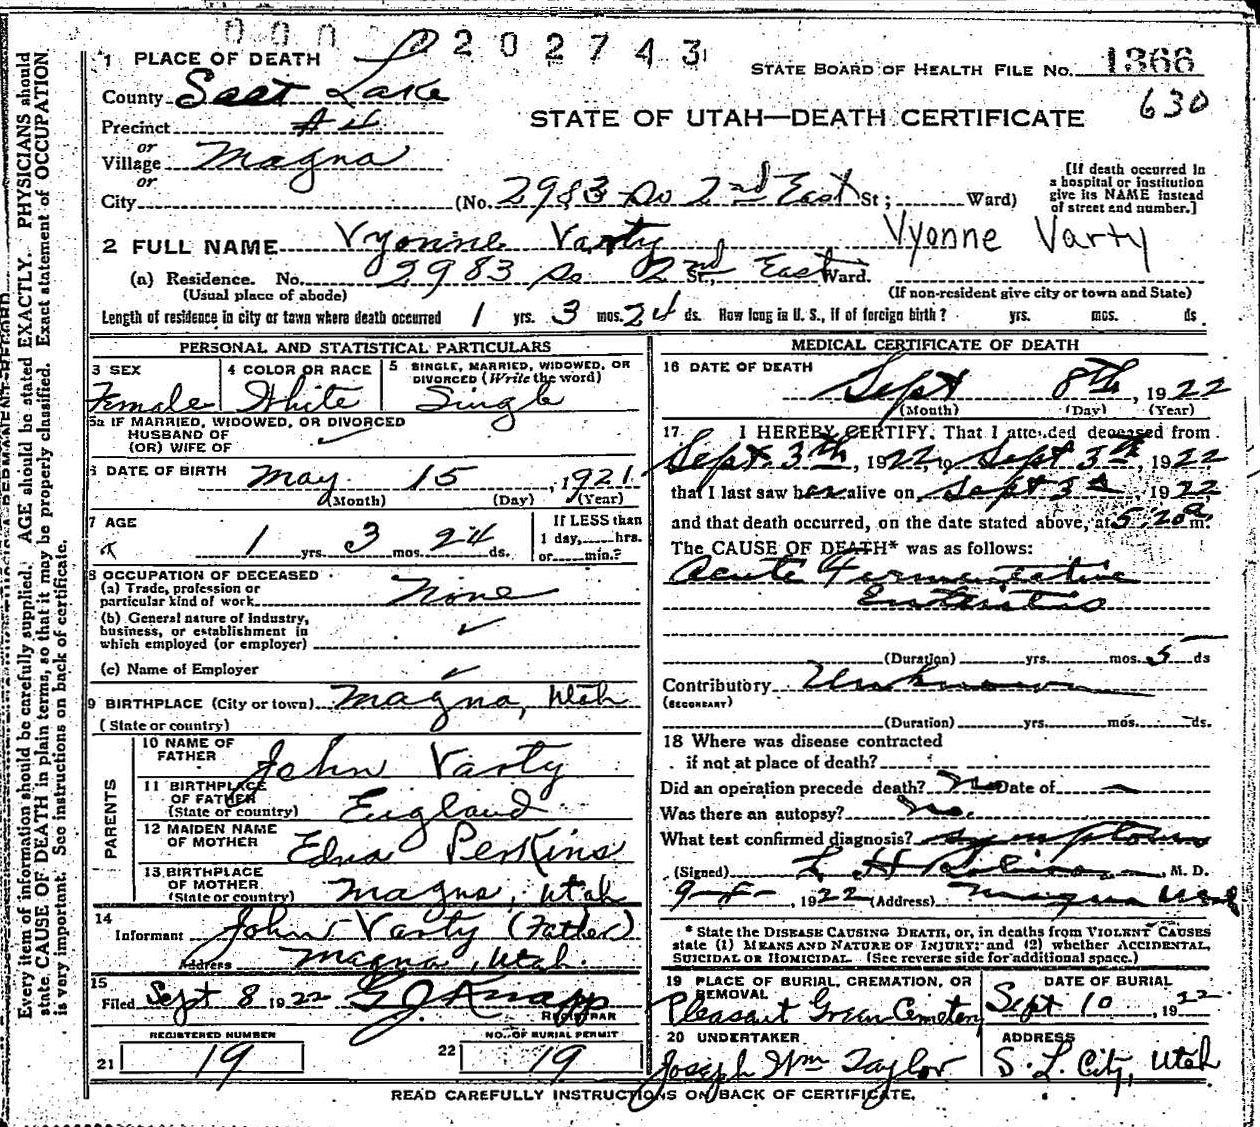 202743
1 PLACE OF DEATH
STATE BOARD OF HEALTH FILE NO. 1366
630
County Salt Lake
STATE OF UTAH—DEATH CERTIFICATE
Precinct #4
or
Village Magna
or
City (No. 2983 So 2nd East St; Ward)
[If death occurred in a hospital or institution give its NAME instead of street and number.]
2 FULL NAME Vyonne Varty Vyonne Varty
(a) Residence. No. 2983 So 2nd St, East Ward.
(Usual place of abode) (If non-resident give city or town and State)
Length of residence in city or town where death occurred 1 yrs. 3 mos. 24 ds. How long in U. S., if of foreign birth? yrs. mos. ds
PERSONAL AND STATISTICAL PARTICULARS
3 SEX Female
4 COLOR OR RACE White
5 SINGLE, MARRIED, WIDOWED, OR DIVORCED (Write the word) Single
5a IF MARRIED, WIDOWED, OR DIVORCED
HUSBAND OF
(OR) WIFE OF
6 DATE OF BIRTH May 15, 1921
(Month) (Day) (Year)
7 AGE
1 yrs. 3 mos. 24 ds.
If LESS than
1 day, hrs.
or min.?
8 OCCUPATION OF DECEASED
(a) Trade, profession or
particular kind of work None
(b) General nature of industry,
business, or establishment in
which employed (or employer)
(c) Name of Employer
9 BIRTHPLACE (City or town) Magna, Utah
(State or country)
PARENTS
10 NAME OF
FATHER John Varty
11 BIRTHPLACE
OF FATHER
(State or country) England
12 MAIDEN NAME
OF MOTHER Edna Perkins
13 BIRTHPLACE
OF MOTHER
(State or country) Magna, Utah
14
Informant John Varty (Father)
Address Magna, Utah.
15
Filed Sept 8 1922 G J Knapp
REGISTRAR
REGISTERED NUMBER
NO. OF BURIAL PERMIT
21 19
22 19
MEDICAL CERTIFICATE OF DEATH
16 DATE OF DEATH
Sept 8th, 1922
(Month) (Day) (Year)
17 I HEREBY CERTIFY, That I attended deceased from
Sept. 3rd, 1922, to Sept 3rd, 1922
that I last saw her alive on Sept 3rd, 1922
and that death occurred, on the date stated above, at 5:20 a m.
The CAUSE OF DEATH* was as follows:
Acute Fermentative
Enteritis
(Duration) yrs. mos. 5 ds
Contributory Unknown
(SECONDARY)
(Duration) yrs. mos. ds.
18 Where was disease contracted
if not at place of death?
Did an operation precede death? No Date of
Was there an autopsy? No.
What test confirmed diagnosis? Symptoms
(Signed) L H M. D.
1922 (Address) Magna Utah
* State the DISEASE CAUSING DEATH, or, in deaths from VIOLENT CAUSES
state (1) MEANS AND NATURE OF INJURY; and (2) whether ACCIDENTAL,
SUICIDAL OR HOMICIDAL. (See reverse side for additional space.)
19 PLACE OF BURIAL, CREMATION, OR
REMOVAL
Pleasant Green Cemetery
DATE OF BURIAL
Sept 10, 1922
20 UNDERTAKER
Joseph Wm Taylor
ADDRESS
S. L. City, Utah
READ CAREFULLY INSTRUCTIONS ON BACK OF CERTIFICATE.
Every item of information should be carefully supplied. AGE should be stated EXACTLY. PHYSICIANS should
state CAUSE OF DEATH in plain terms, so that it may be properly classified. Exact statement of OCCUPATION
is very important. See instructions on back of certificate.